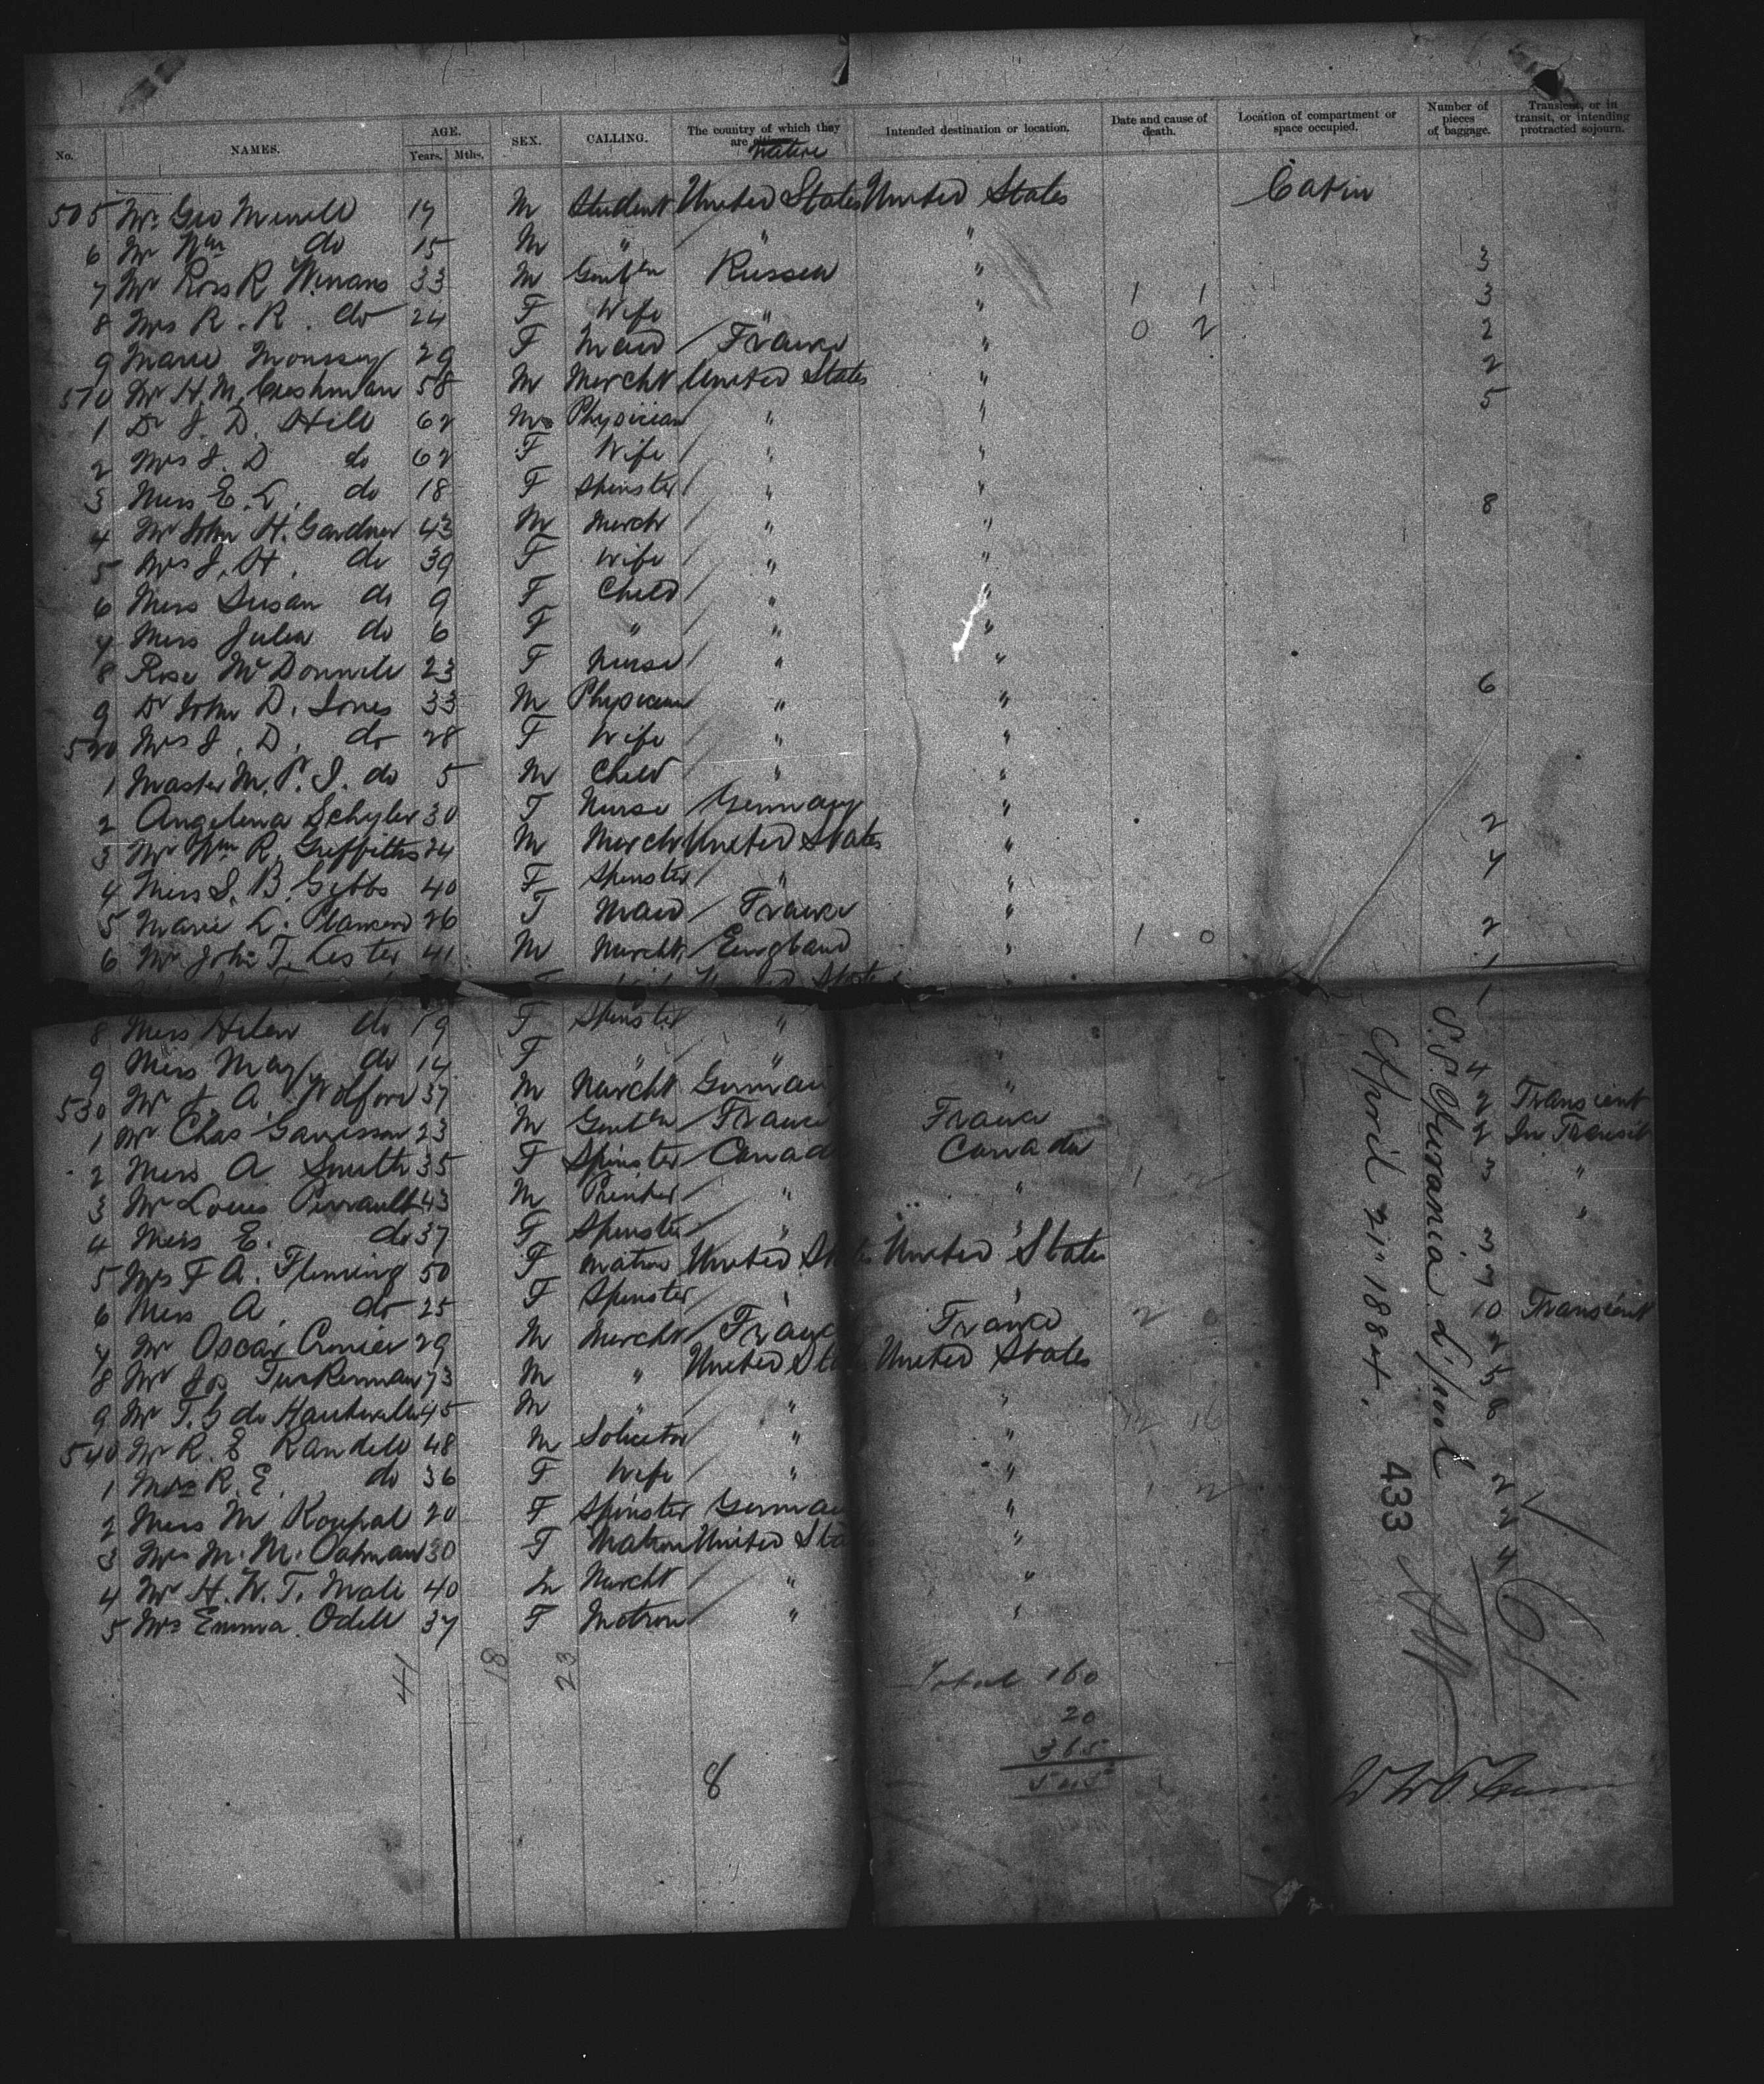 No. NAMES. AGE. Years. Mths. SEX. CALLING. The country of which they are citizens. Native Intended destination or location. Date and cause of death. Location of compartment or space occupied. Number of pieces of baggage. Transient, or in transit, or intending protracted sojourn.
505 Mr Geo Merrill 19 M Student United States United States Cabin
6 Mr Wm do 15 M " " "
7 Mr Ross R Winans 33 M Gentln Russia " 3
8 Mrs R. R. do 24 F Wife " " 1 1 3
9 Marie Monssey 29 F Maid France " 0 2 2
510 Mr H. M. Cushman 58 M Mercht United States " 2
1 Dr J. D. Hill 62 M Physician " " 5
2 Mrs J. D do 62 F Wife " "
3 Miss E. L. do 18 F Spinster " "
4 Mr John H. Gardner 43 M Merch " " 8
5 Mrs J. H. do 39 F Wife " "
6 Miss Susan do 9 F Child " "
7 Miss Julia do 6 F " " "
8 Rose McDonnell 23 F Nurse " "
9 Dr John D. Jones 33 M Physician " " 6
520 Mrs J. D. do 28 F Wife " "
1 Master M. P. J. do 5 M Child " "
2 Angelina Schyler 30 F Nurse Germany "
3 Mr Wm R. Griffiths 24 M Mercht United States " 2
4 Miss S. B. Gibbs 40 F Spinster " " 4
5 Marie L. 26 F Maid France "
6 Mr John T. Lester 41 M Mercht England " 1 0 2
United States 1
8 Miss Helen do 19 F Spinster " " 1
9 Miss May do 14 F " " "
530 Mr A. Wolford 37 M Mercht German " 4
1 Mr Chas Garrisson 23 M Gentln France France 2 Transient
2 Miss A Smith 35 F Spinster Canad Canada 2 In Transit
3 Mr Louis Perrault 43 M Printer " " 1 2 3 "
4 Miss E. do 37 F Spinster " " "
5 Mrs F A. Fleming 50 F Matron United St United States 3
6 Miss A. do 25 F Spinster " " 7
7 Mr Oscar Cronier 29 M Mercht Franc France 2 0 10 Transient
8 Mr Jos Tuckerman 73 M " United Sta United States 2
9 Mr T. G do 45 M " " " 5
540 Mr R. E Randell 48 M Solicitor " " 8
1 Mrs R. E. do 36 F Wife " "
2 Miss M Roupal 20 F Spinster German " 1 2 2
3 Mrs M. M. Oatman 30 F Matron United Sta " 2
4 Mr H. W. T. Mali 40 M Mercht " " 4
5 Mrs Emma Odell 37 F Matron " "
41 18 23
Total 160
20
365
545
8
S.S. Aurania L'pool
April 21" 1884.
433